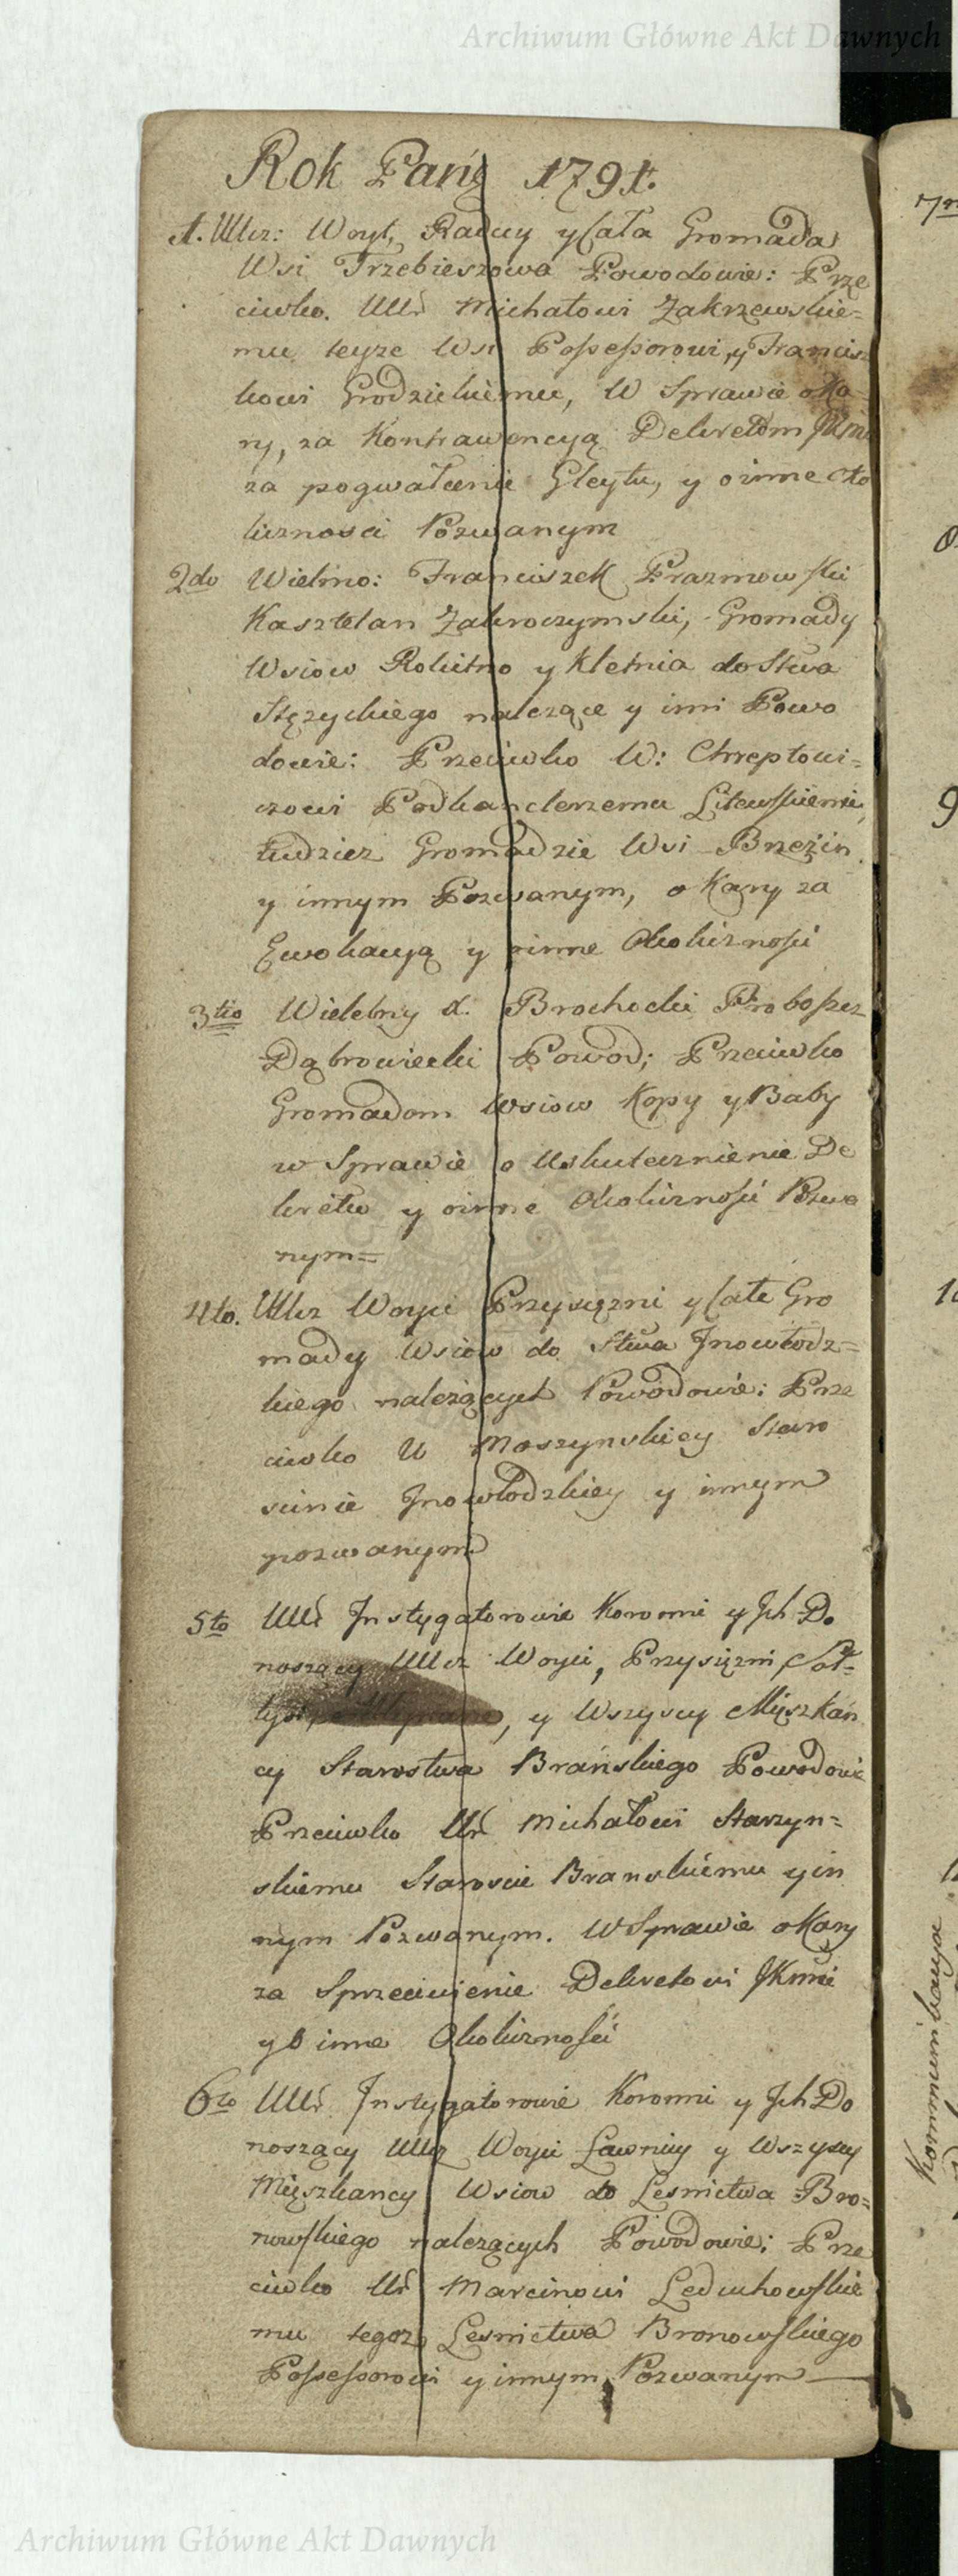 Archiwum Główne Akt Dawnych
Rok Pańs 1791.
1. Ucz: Woyt, Radcy y cała Gromada
Wsi Trzebieszowa Powodowie: Prze
ciwko. Ur Michałowi Zakrzewskie=
mu teyze Wsi Possessorowi, y Francisz
kowi Grodzickiemu, W Sprawie o Ka
ry, za Kontrawencyą Dekretom
za pogwałcenie Gleytu, y o inne Oko
licznosci Pozwanym
2do Wielmo: Franciszek Prazmowski
Kasztelan Zakroczymski, Gromady
Wsiow Rokitno y Kletnia do Stwa
Stęzyckiego nalezące y inni Powo
dowie: Przeciwko W: Chreptowi=
czowi Podkanclerzemu Litewskiemu,
tudziez Gromadzie Wsi Brzezin
y innym Pozwanym, o Kary za
Ewokacyą y inne Okolicznosci
3tio Wielebny X. Brochocki Proboszcz
Dąbrowiecki Powod; Przeciwko
Gromadom Wsiow Kopy y Baby
w Sprawie o Uskutecznienie De
kretu y o inne Okolicznosci Pozwa
nym=
4to. Ucz Woyci Przysięzni y całe Gro
mady Wsiow do Stwa Inowłodz=
kiego nalezących Powodowie: Prze
ciwko W Moszynskiey Staro
scinie Inowłodzkiey y innym
pozwanym
5to UUr Instygatorowie Koronni y Ich Do
noszący UUcz Woyci, Przysięzni, Soł=
tysi, , y Wszyscy Mięszkań
cy Starostwa Brańskiego Powodowie
Przeciwko Ur Michałowi Starzyn=
skiemu Staroscie Branskiemu y in
nym Pozwanym. W Sprawie o Kary
za Sprzeciwienie Dekretowi JKMci
y o inne Okolicznosci
6to UUr Instygatorowie Koronni y Ich Do
noszący UUcz Woyci Ławnicy y Wszyscy
Mięszkancy Wsiow do Lesnictwa Bro=
nowskiego nalezących Powodowie: Prze
ciwko Ur Marcinowi Leduchowskie
mu tegoz Lesnictwa Bronowskiego
Possessorowi y innym Pozwanym
7m
9
10
Kommunikacya
Archiwum Główne Akt Dawnych